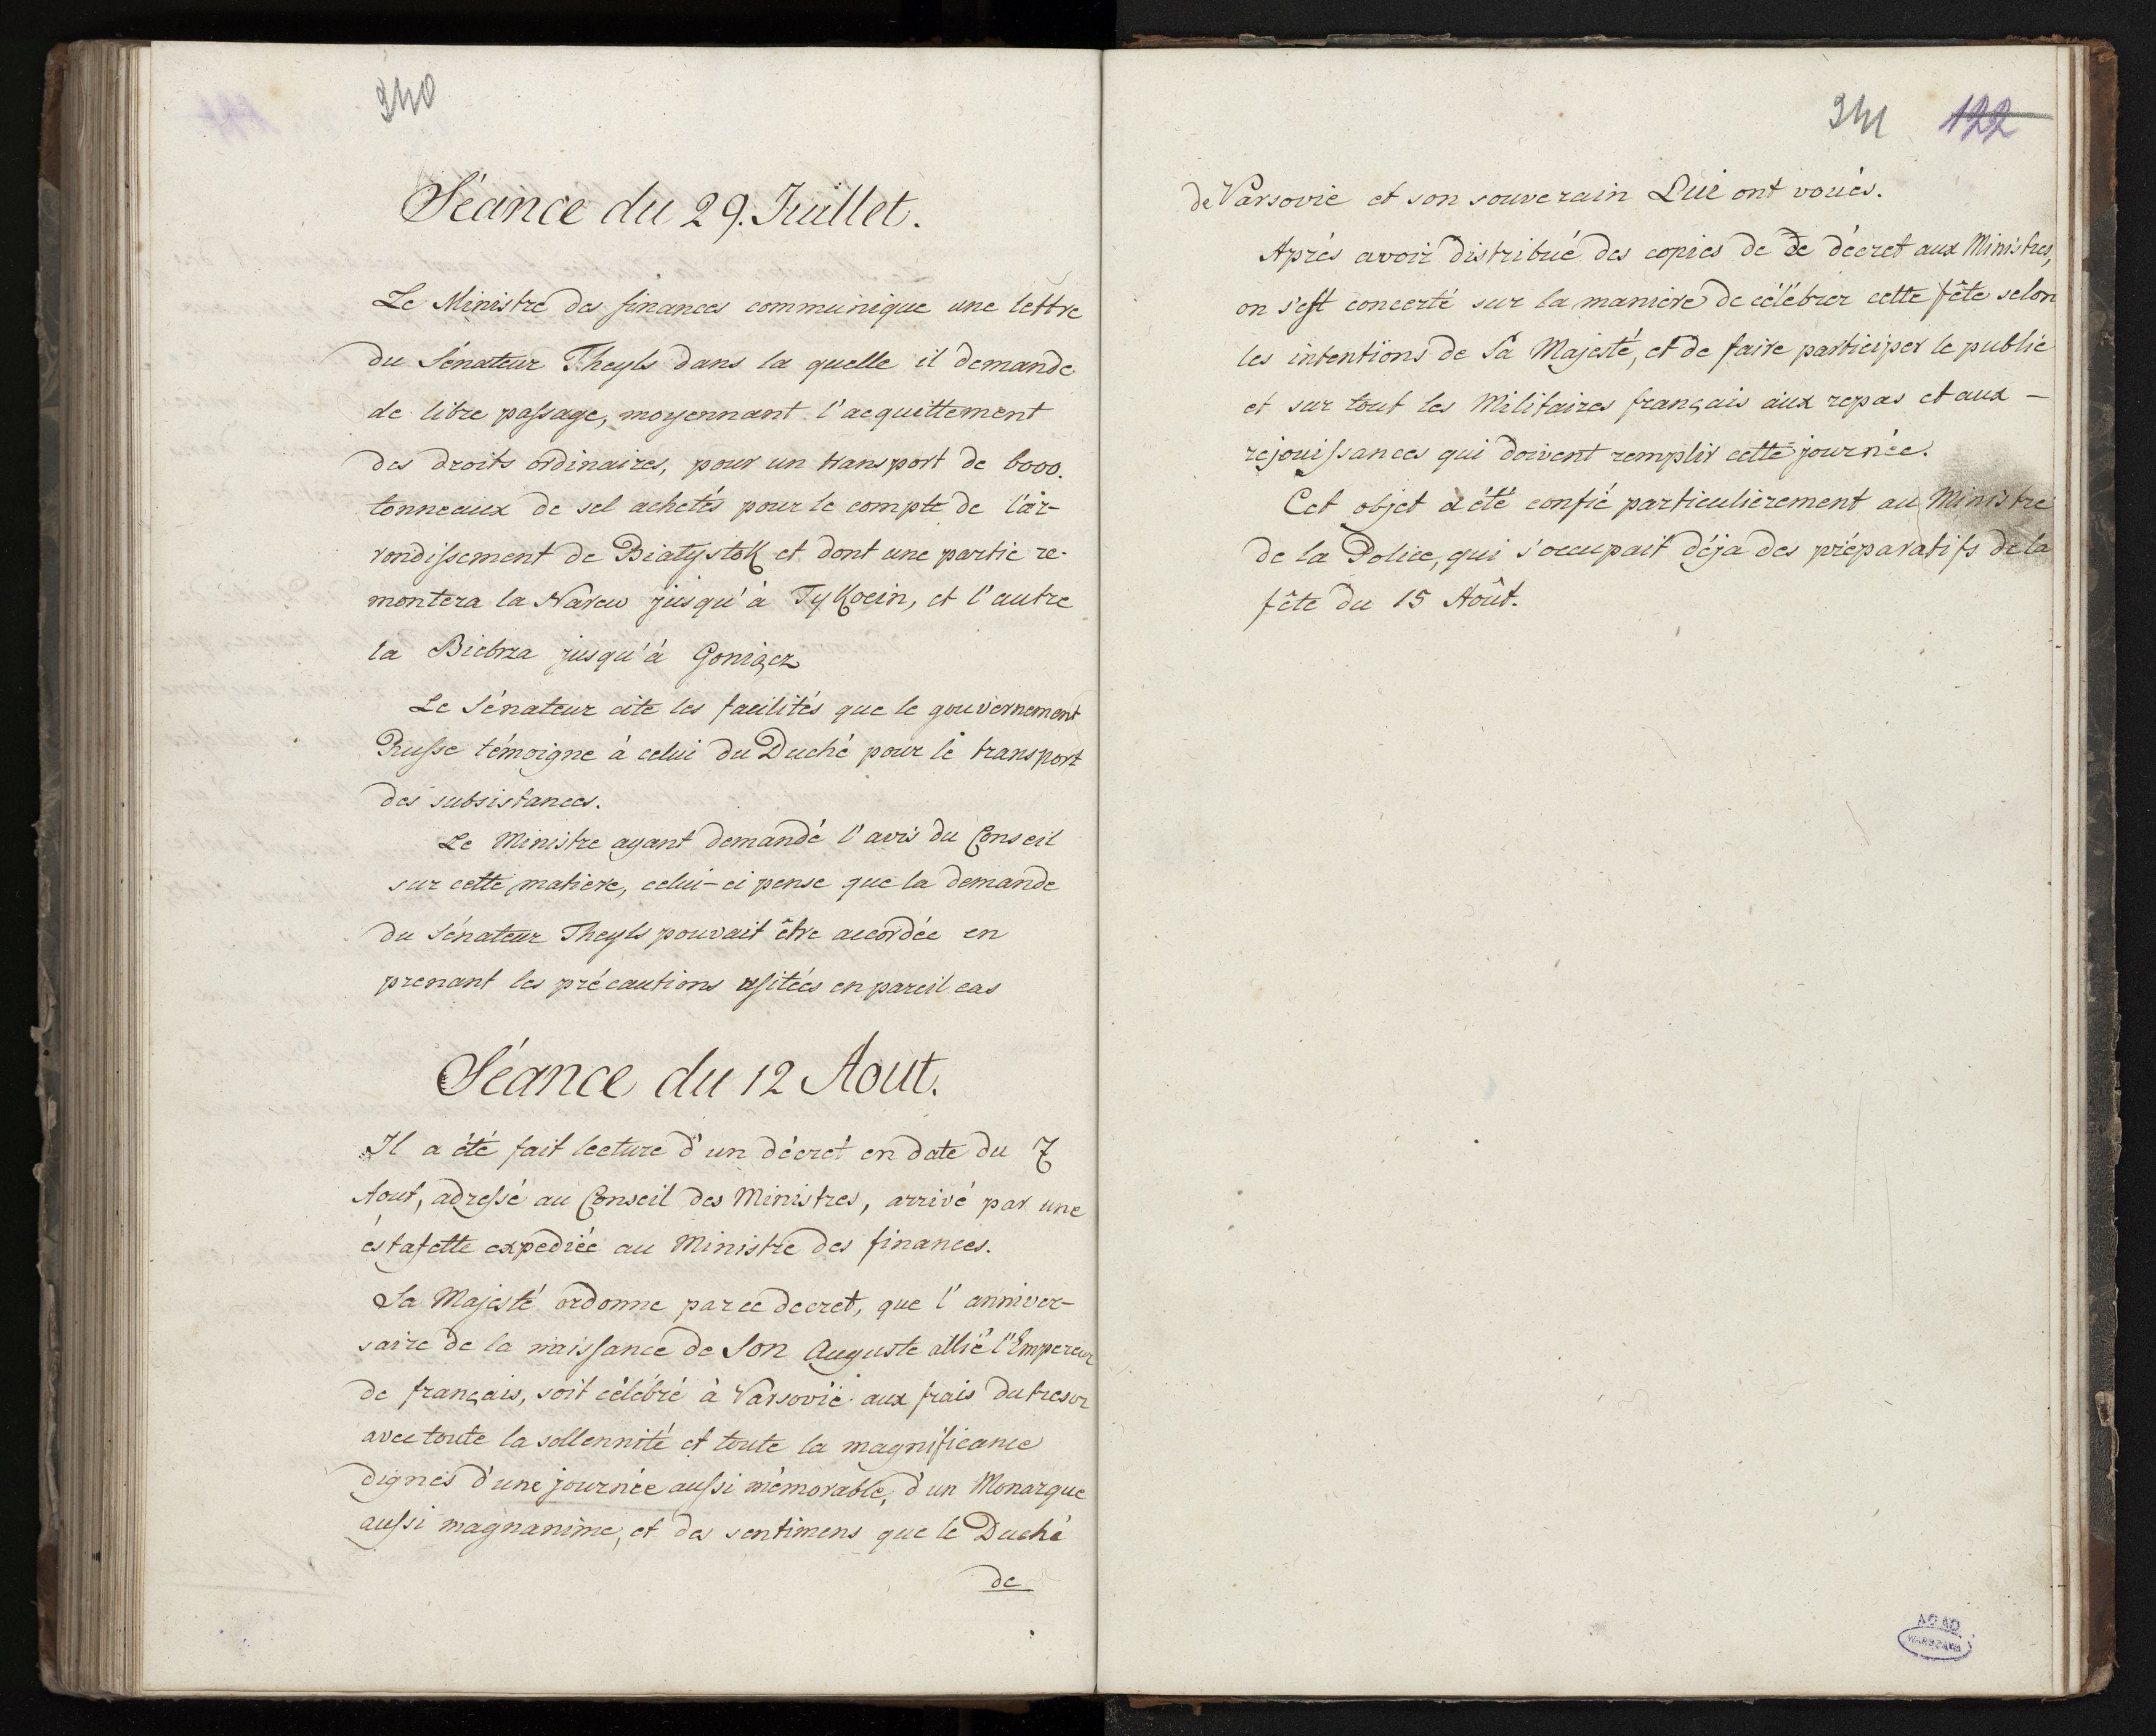 340
Séance du 29. Juillet.
Le Ministre des finances communique une lettre
du Sénateur Theyls dans la quelle il demande
de libre passage, moyennant l'acquittement
des droits ordinaires, pour un transport de 6000.
tonneaux de sel achetés pour le compte de l'ar-
rondissement de Białystok et dont une partie re-
montera la Narew jusqu'à Tykocin, et l'autre
la Biebrza jusqu'à Goniącz
Le Sénateur cite les facilités que le gouvernement
Russe témoigne à celui du Duché pour le transport
des subsistances.
Le Ministre ayant demandé l'avis du Conseil
sur cette matiere, celui-ci pense que la demande
du Sénateur Theyls pouvait être accordée en
prenant les précautions usitées en pareil cas
Séance du 12 Aout.
Il a été fait lecture d'un décret en date du 7
Aout, adressé au Conseil des Ministres, arrivé par une
éstafette expediée au Ministre des finances.
Sa Majesté ordonne par ce decret, que l'anniver-
saire de la naissance de Son Auguste allié l'Empereur
de français, soit célébré à Varsovie aux frais du tresor
avec toute la sollennité et toute la magnificance
dignes d'une journée aussi mémorable, d'un Monarque
aussi magnanime, et des sentimens que le Duché
de
341 122
de Varsovie et son souverain Lui ont voués.
Aprés avoir distribué des copies de ce décret aux Ministres,
on s'est concerté sur la maniere de célébrer cette fête selon
les intentions de Sa Majesté, et de faire participer le public
et sur tout les Militaires français aux repas et aux –
rejouissances qui doivent remplir cette journée.
Cet objet a été confié particulierement au Ministre
de la Police, qui s'occupait déja des préparatifs de la
fête du 15 Août.
AGAD
WARSZAWA